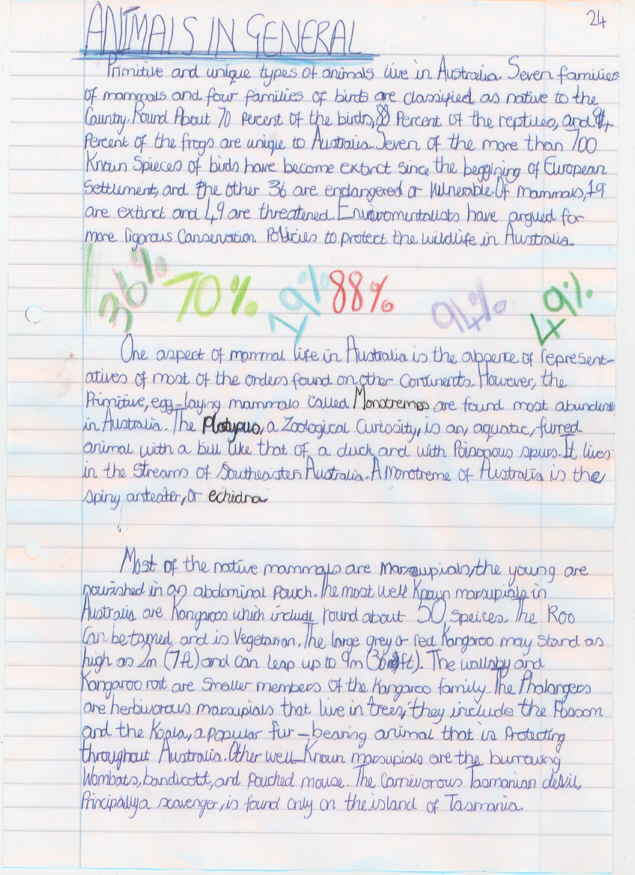 24
ANIMALS IN GENERAL
Primitive and unique types of animals live in Australia. Seven families
of mammals and four families of birds are classified as native to the
Country. Round About 70 Percent of the birds, 88 Percent of the reptiles, and 94
Percent of the frogs are unique to Australia. Seven of the more than 700
Known Spieces of birds have become extinct since the beggining of European
Settlement, and the other 36 are endangered or Vulnerable. Of mammals, 19
are extinct and 49 are threatened. Enviromentalists have argued for
more rigorous Conservation Policies to protect the wildlife in Australia.
36% 70% 19% 88% 94% 49%
One aspect of mammal life in Australia is the absence of represent-
atives of most of the orders found on other Continents. However, the
Primitive, egg-laying mammals called Monotremes are found most abundens
in Australia. The Platypus, a Zoological Curiosity, is an aquatic, furred
animal with a bill like that of a duck and with Poisonous spurs. It lives
in the streams of Southeastern Australia. A Monotreme of Australia is the
Spiny anteater, or echidna
Most of the native mammals are Marsupials, the young are
nourished in an abdominal Pouch. The most well Known marsupials in
Australia are Kangaroos which include round about 50 Speices. The Roo
Can be tamed and is Vegetarian. The large grey or red Kangaroo may stand as
high as 2m (7ft) and can leap up to 9m (30ft). The wallaby and
Kangaroo rat are Smaller members of the Kangaroo family. The Phalangers
are herbivorous marsupials that live in trees, they include the Possom
and the Koala, a Popular fur-bearing animal that is Protecting
throughout Australia. Other well-Known marsupials are the burrowing
Wombats, bandicott, and Pouched mouse. The Carnivorous Tasmanian devil,
Principally a scavenger, is found only on the island of Tasmania.